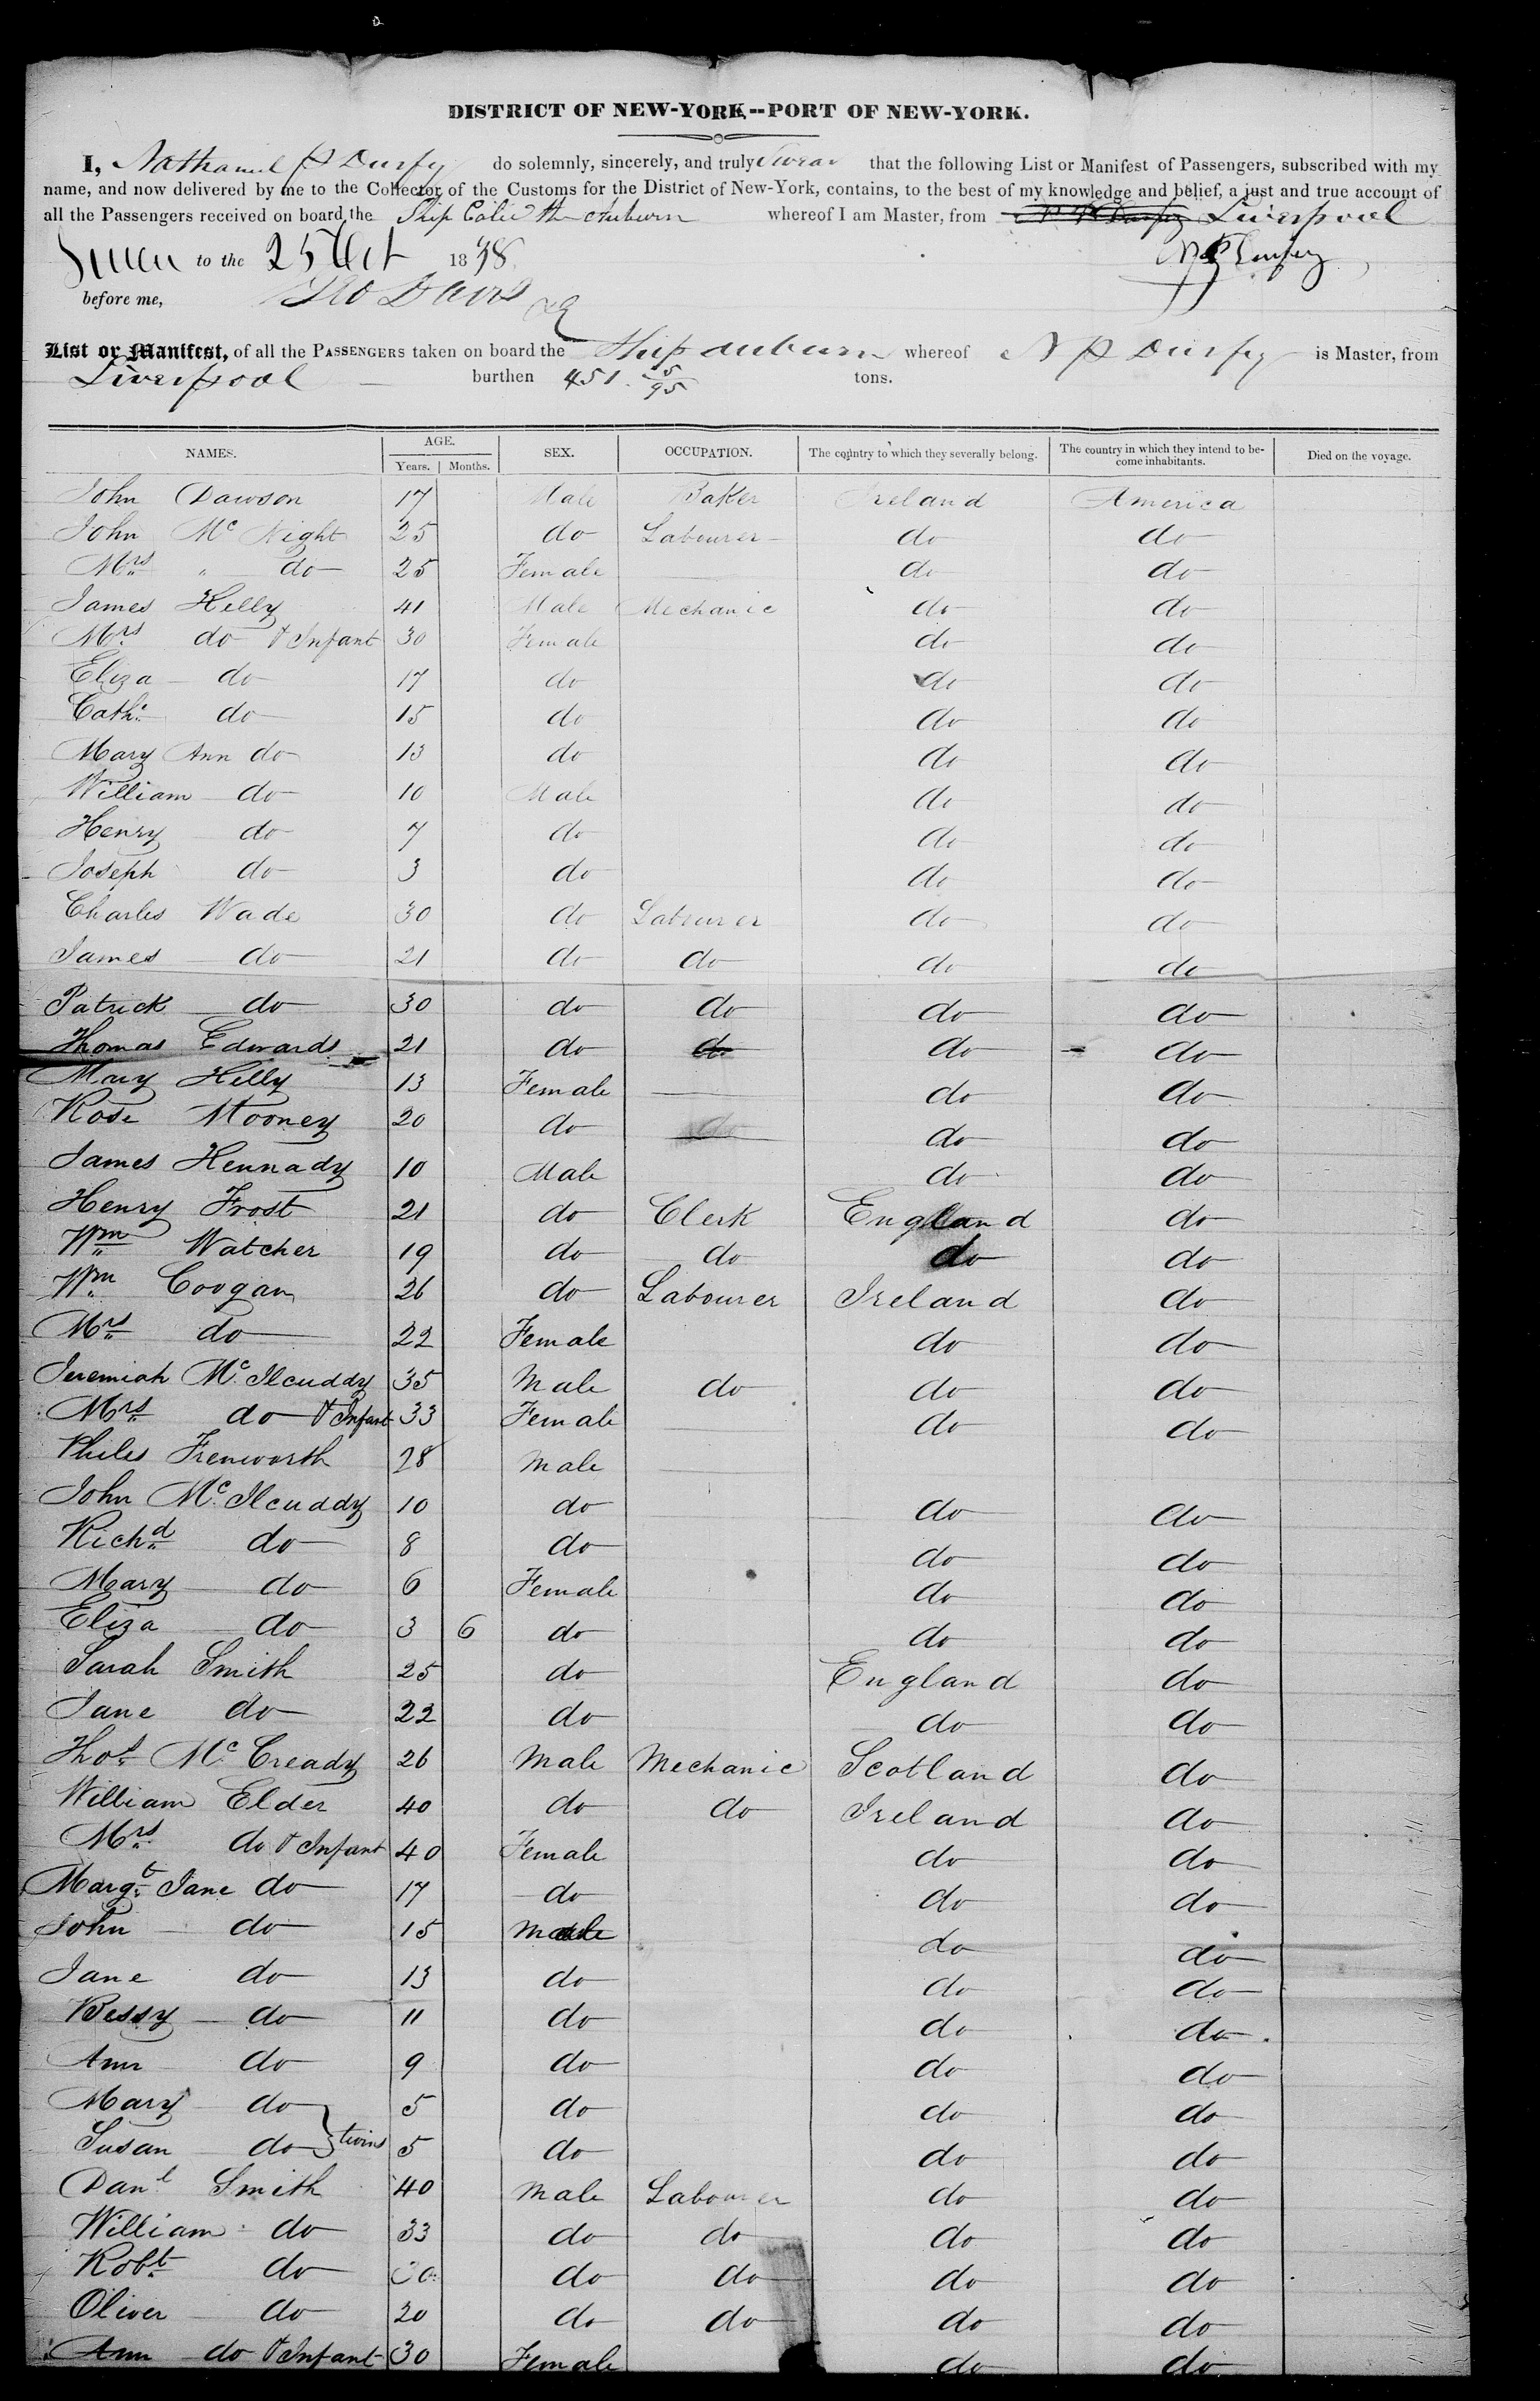 DISTRICT OF NEW-YORK--PORT OF NEW-YORK.
I, Nathaniel P Durfey do solemnly, sincerely, and truly Swear that the following List or Manifest of Passengers, subscribed with my
name, and now delivered by me to the Collector of the Customs for the District of New-York, contains, to the best of my knowledge and belief, a just and true account of
all the Passengers received on board the Ship Called the Auburn whereof I am Master, from Liverpool
to the 25 Oct 1838 N P Durfey
before me, Geo Davis
List or Manifest, of all the PASSENGERS taken on board the Ship Auburn whereof N P Durfey is Master, from
Liverpool burthen 451 5/95 tons.
NAMES. AGE. SEX. OCCUPATION. The country to which they severally belong. The country in which they intend to be- come inhabitants. Died on the voyage.
Years. Months.
John Dawson 17 Male Baker Ireland America
John Mc Night 25 do Labourer do do
Mrs " do 25 Female do do
James Helly 41 Male Mechanic do do
Mrs do & Infant 30 Female do do
Eliza do 17 do do do
Cathe do 15 do do do
Mary Ann do 13 do do do
William do 10 Male do do
Henry do 7 do do do
Joseph do 3 do do do
Charles Wade 30 do Labourer do do
James do 21 do do do do
Patrick do 30 do do do do
Thomas Edwards 21 do do do do
Mary Helly 13 Female do do
Rose Mooney 20 do do do
James Hennady 10 Male do do
Henry Frost 21 do Clerk England do
Wm Watcher 19 do do do do
Wm Coogan 26 do Labourer Ireland do
Mrs do 22 Female do do
Jeremiah Mc Ilcuddy 35 Male do do do
Mrs do & Infant 33 Female do do
Philes Frenworth 28 Male
John Mc Ilcuddy 10 do do do
Richd do 8 do do do
Mary do 6 Female do do
Eliza do 3 6 do do do
Sarah Smith 25 do England do
Jane do 22 do do do
Thos Mc Cready 26 Male Mechanic Scotland do
William Elder 40 do do Ireland do
Mrs do & Infant 40 Female do do
Margt Jane do 17 do do do
John do 15 Male do do
Jane do 13 do do do
Bessy do 11 do do do
Ann do 9 do do do
Mary do 5 do do do
Susan do twins 5 do do do
Danl Smith 40 Male Labourer do do
William do 33 do do do do
Robt do do do do do
Oliver do 20 do do do do
Ann do & Infant 30 Female do do